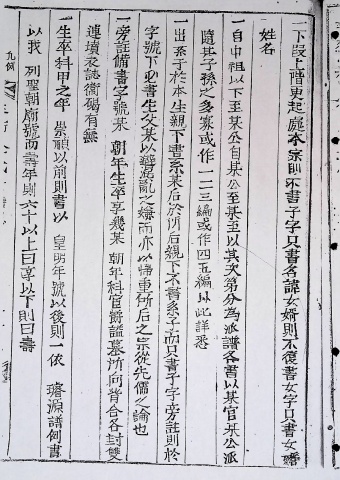 一下段上階更起處本宗則不書子字只書名諱女婿則不復書女字只書女婿
姓名
一自中祖以下至某公自某公至某至以其次第分為派譜各書以某官某公派
隨其子孫之多寡或作一二三編或作四五編以此詳悉
一出系子於本生親下書系某后於所后親下不書系子而只書子字旁註則於
字號下必書生父某以避混亂之嫌而亦以悕重所后之宗從先儒之論也
一旁註備書字號某朝年生卒享幾某朝年科官爵謚墓所向背合各封雙
連墳表誌衛碣有無
一生卒科甲之年 崇禎以前則書以 皇明年號以後則一依 璿源譜例書
以我 列聖朝廟號而壽年則六十以上曰享以下則曰壽
凡例